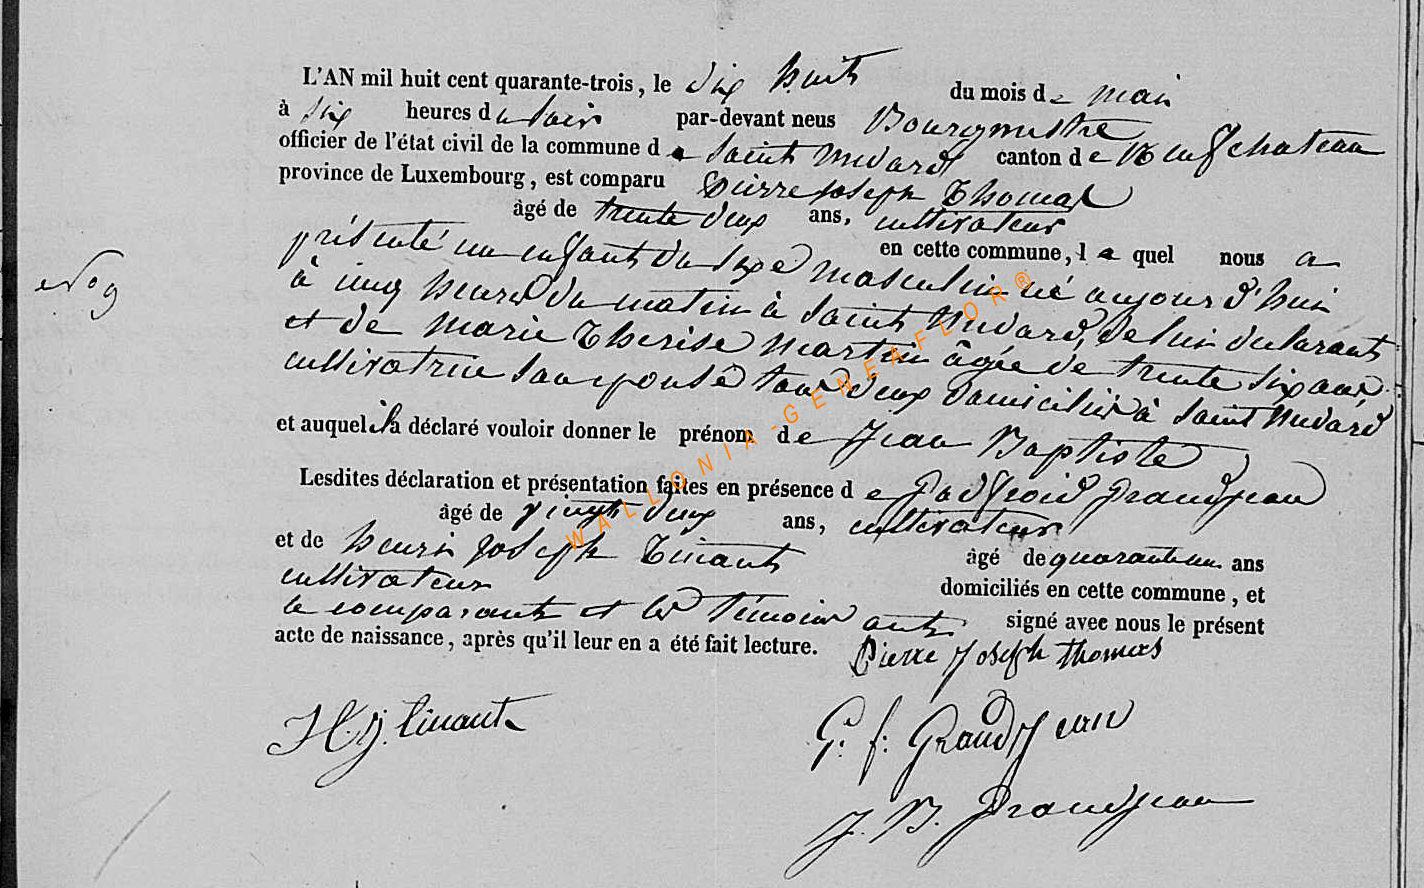 L'AN mil huit cent quarante-trois, le dix huit du mois de mai
à six heures du soir par-devant nous Bourgmestre
officier de l'état civil de la commune de Saint Médard canton de Neufchateau
province de Luxembourg, est comparu Pierre Joseph Thomas
âgé de trente deux ans, cultivateur
en cette commune, lequel nous a
No 9
présenté un enfant du sexe masculin né aujourd'hui
à cinq heures du matin à Saint Médard, de lui declarant
et de Marie Therise Martin âgée de trente six ans,
cultivatrice son epouse tous deux domiciliés à Saint Médard
et auquel il a déclaré vouloir donner le prénom de Jean Baptiste
Lesdites déclaration et présentation faites en présence de Godfroid Grandjean
âgé de vingt deux ans, cultivateur
et de henri Joseph Tinant âgé de quarante un ans
cultivateur domiciliés en cette commune, et
le comparant et les témoins ont signé avec nous le présent
acte de naissance, après qu'il leur en a été fait lecture. Pierre Joseph thomas
H. J. tinant G. f. Grandjean
J. B. Grandjean
WALLONIA-GENEAFLOR®